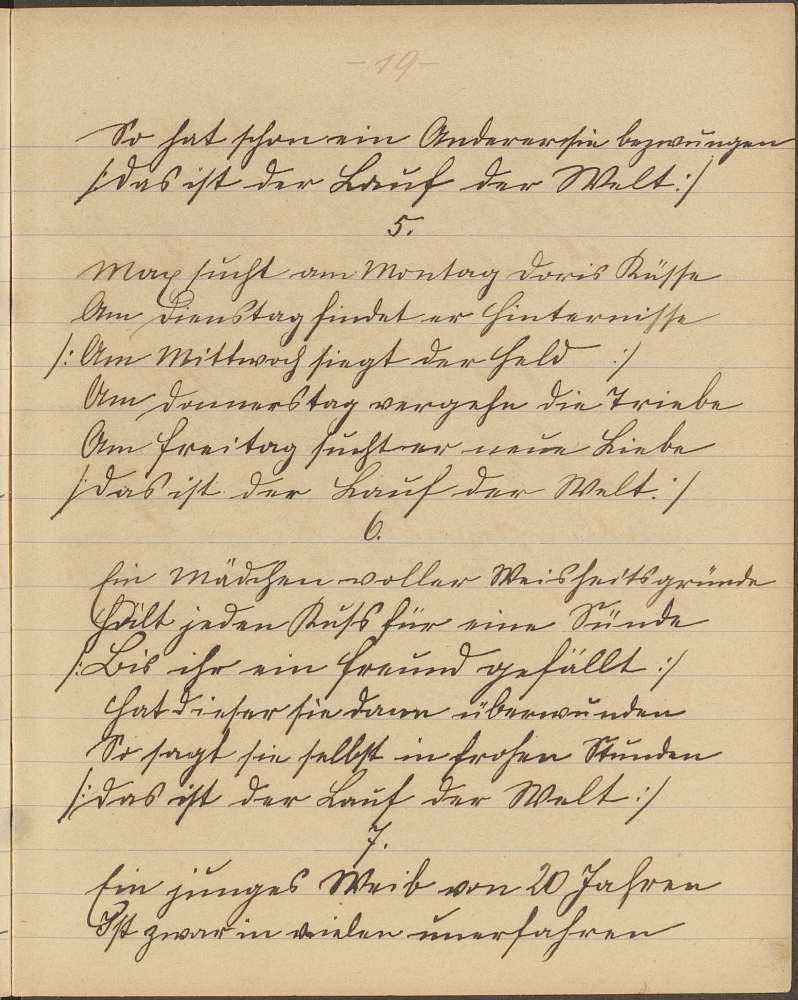 - 19 -
So hat schon ein Anderer sie bezwungen
/: das ist der Lauf der Welt :/
5.
Max sucht am Montag Doris Küsse
Am Dienstag findet er Hinternisse
/: Am Mittwoch siegt der Held :/
Am Donnerstag vergehn die Triebe
Am Freitag sucht er neue Liebe
/: das ist der Lauf der Welt. :/
6.
Ein Mädchen voller Weisheitsgründe
Hält jeden Kuss für eine Sünde
/: Bis ihr ein Freund gefällt :/
Hat dieser sie dann überwunden
So sagt sie selbst in frohen Stunden
/: das ist der Lauf der Welt :/
7.
Ein junges Weib von 20 Jahren
Ist zwar in vielen unerfahren